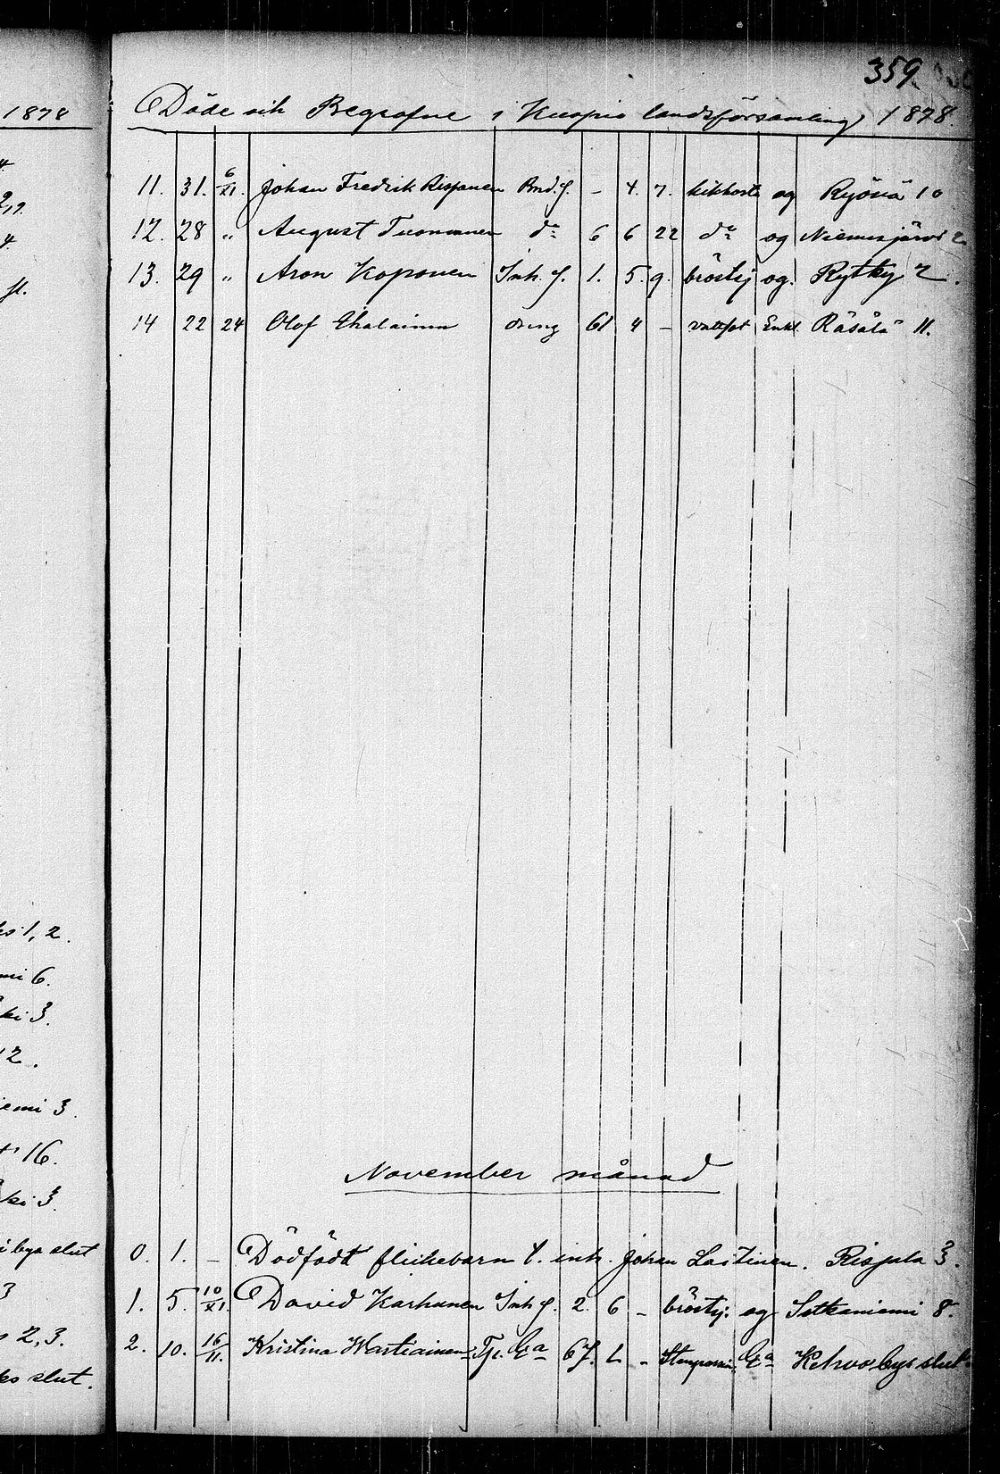 1878
359.
Döde och Begrafne i Kuopio landsförsamling 1878.
11. 31. 6/XI. Johan Fredrik Rissanen Bnd. f. – 4. 7. kikhosta og Ryönä 10
12. 28 " August Tuomainen do 6 6 22 do og Niemisjärvi 2.
13. 29 " Aron Koponen Inh. f. 1. 5. 9. bröstsj og. Rytky 2.
14 22 24 Olof dreng 61 4 – vattsot Enkl Räsälä 11.
1, 2.
mi 6.
ki 3.
12.
iemi 3.
16.
ki 3.
i bys slut
3
2, 3.
slut.
November månad
0. 1. – Dödfödt flickebarn t. inh. Johan Laitinen. 3.
1. 5. 10/XI. David Karhunen Inh f. 2. 6 – bröstsj. og Litkaniemi 8.
2. 10. 16/11. Kristina Wartiainen Tj. Ea 67. – Ea bys slut